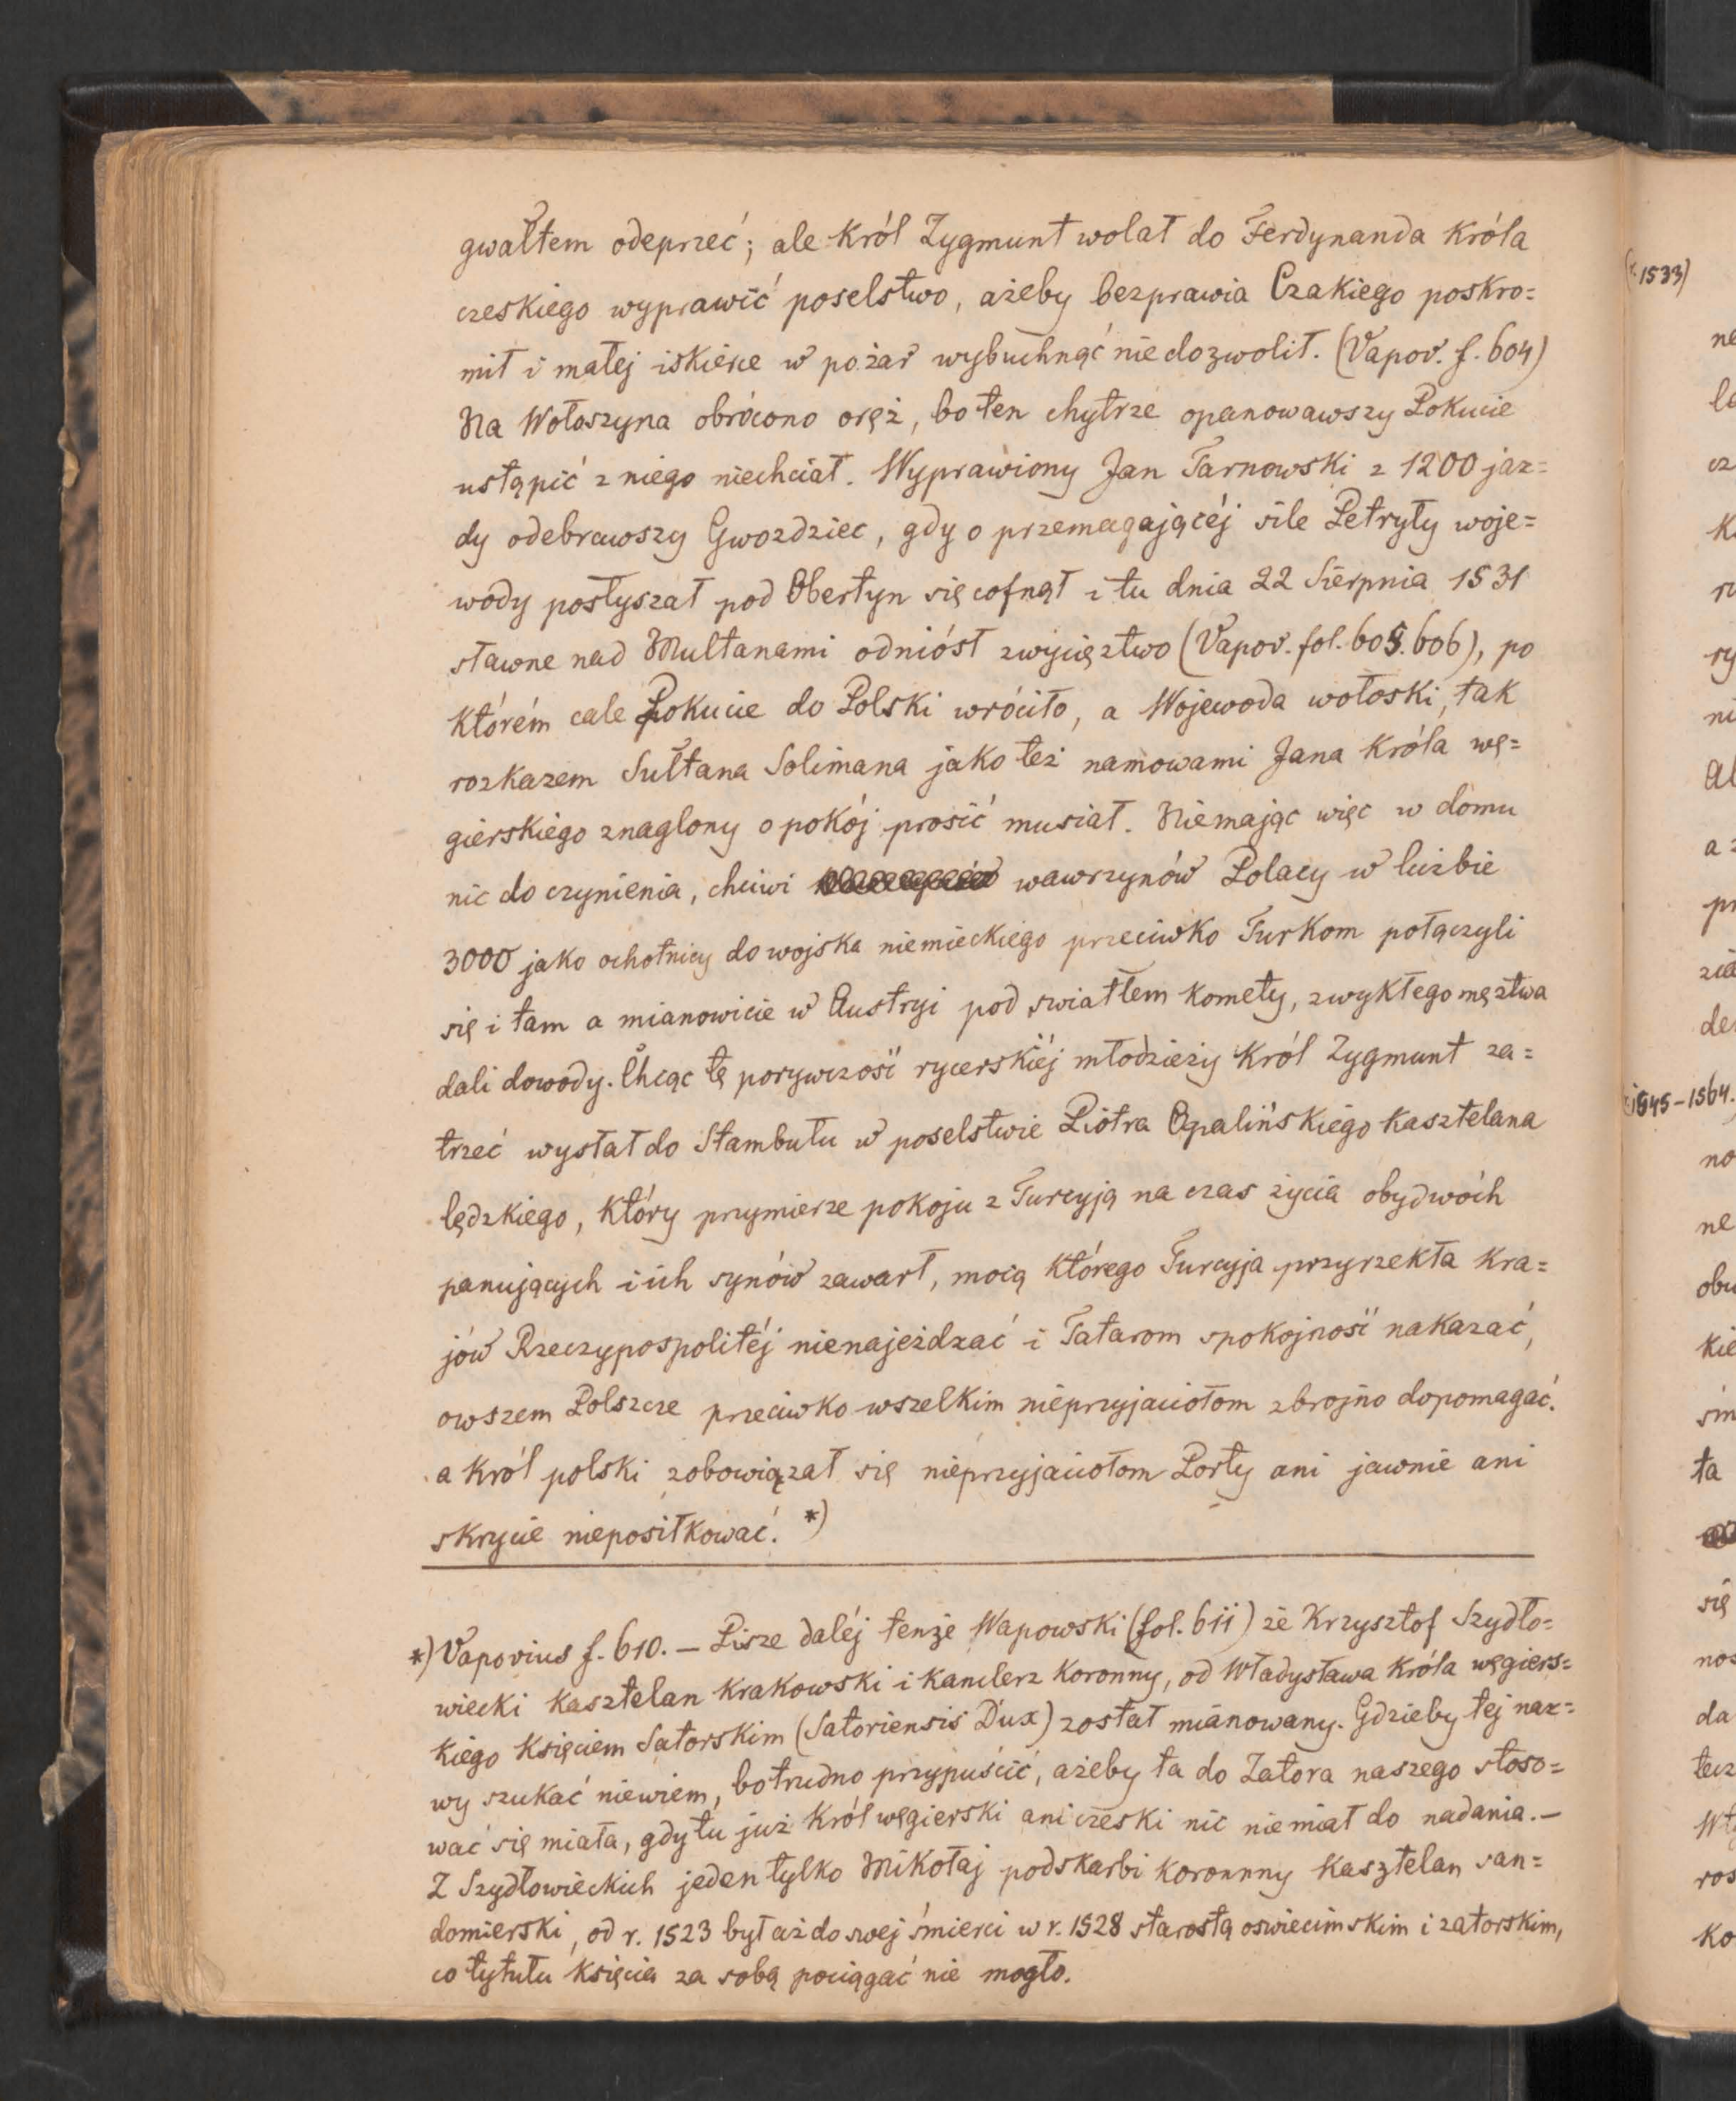 gwałtem odeprzeć; ale król Zygmunt wolał do Ferdynanda króla
czeskiego wyprawić poselstwo, ażeby bezprawia Czakiego poskro=
mił i małej iskierce w pożar wybuchnąć nie dozwolił. (Vapov. f. 604)
Na Wołoszyna obrócono oręż, bo ten chytrze opanowawszy Pokucie
ustąpić z niego niechciał. Wyprawiony Jan Tarnowski z 1200 jaz=
dy odebrawszy Gwozdziec, gdy o przemagającéj sile Petryły woje=
wody posłyszał pod Obertyn się cofnął i tu dnia 22 Sierpnia 1531
sławne nad Multanami odniósł zwycięztwo (Vapov. fol. 605. 606), po
którém cale Pokucie do Polski wróciło, a Wojewoda wołoski, tak
rozkazem Sułtana Solimana jako też namowami Jana króla wę=
gierskiego znaglony o pokój prosić musiał. Niemając więc w domu
nic do czynienia, chciwi wawrzynów Polacy w liczbie
3000 jako ochotnicy do wojska niemieckiego przeciwko Turkom połączyli
się i tam a mianowicie w Austryi pod swiatłem komety, zwykłego męztwa
dali dowody. Chcąc tę porywczość rycerskiéj młodzieży król Zygmunt za=
trzeć wysłał do Stambułu w poselstwie Piotra Opalińskiego kasztelana
lędzkiego, który przymierze pokoju z Turcyją na czas życia obydwóch
panujących i ich synów zawarł, mocą którego Turcyja przyrzekła kra=
jów Rzeczypospolitéj nienajeżdzać i Tatarom spokojność nakazać,
owszem Polszcze przeciwko wszelkim nieprzyjaciołom zbrojno dopomagać.
a król polski zobowiązał się nieprzyjaciołom Porty ani jawnie ani
skrycie nieposiłkować. *)
*) Vapovius f. 610. – Pisze daléj tenże Wapowski (fol. 611) że Krzysztof Szydło=
wiecki kasztelan krakowski i kanclerz koronny, od Władysława króla węgiers=
kiego księciem Satorskim (Satoriensis Dux) został mianowany. Gdzieby tej naz=
wy szukać niewiem, bo trudno przypuścić, ażeby ta do Zatora naszego stoso=
wać się miała, gdy tu już król węgierski ani czeski nic nie miał do nadania. –
Z Szydłowieckich jeden tylko Mikołaj podskarbi koronnny kasztelan san=
domierski, od r. 1523 był aż do swej śmierci w r. 1528 starostą oswiecimskim i zatorskim,
co tytułu księcia za sobą pociągać nie mogło.
1533)
1545–1564.